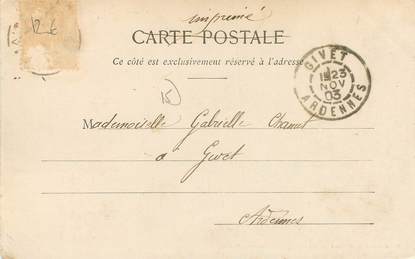 imprimé
CARTE POSTALE
Ce côté est exclusivement réservé à l'adresse
GIVET
23
NOV
03
ARDENNES
15
Mademoiselle Gabrielle
à Givet
Ardennes